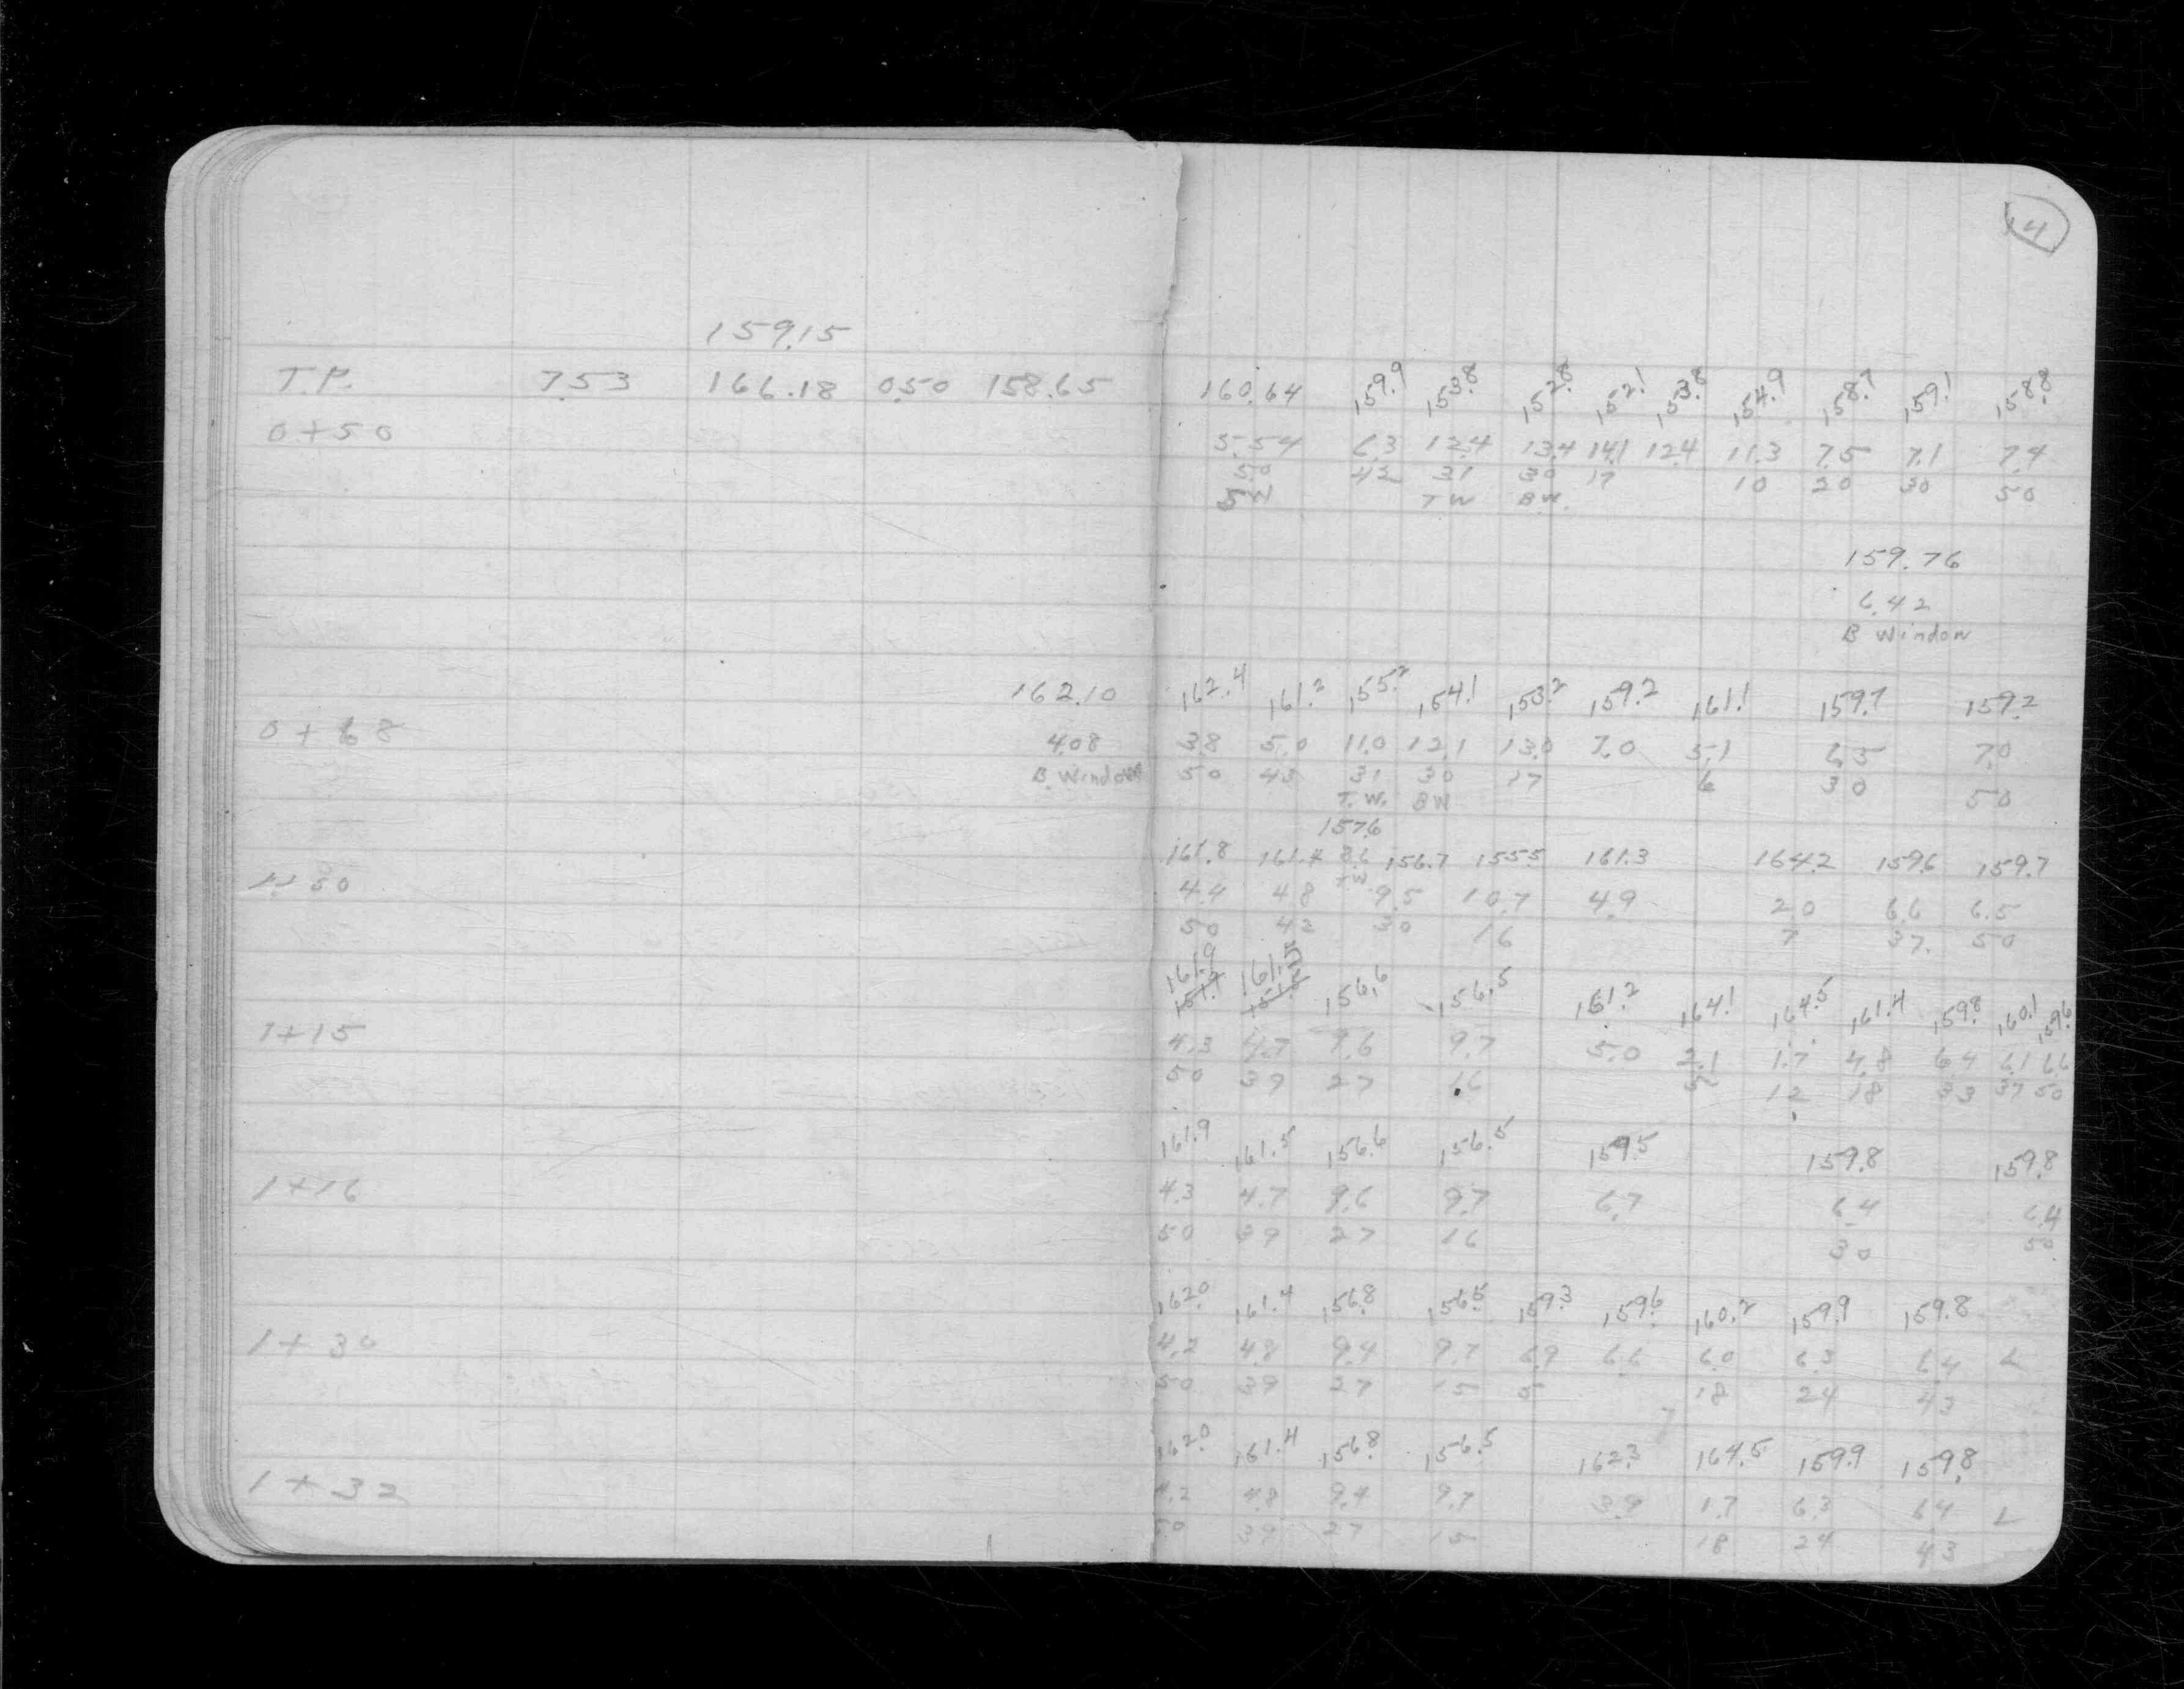 14
159.15
T.P. 7.53 166.18 0.50 158.65 160.64 159.9 153.8 152.8 152.1 153.8 154.9 158.7 159.1 158.8
0+50 5.54 6.3 12.4 13.4 14.1 12.4 11.3 7.5 7.1 7.4
50 42 31 30 17 10 20 30 50
TW BW.
159.76
6.42
B Window
162.10 162.4 161.2 155.2 154.1 153.2 159.2 161.1 159.7 159.2
0+68 4.08 3.8 5.0 11.0 12.1 13.0 7.0 5.1 6.5 7.0
B. Window 50 43 31 30 17 6 30 50
T.W. BW
157.6
161.8 161.4 8.6 156.7 155.5 161.3 164.2 159.6 159.7
TW
4.4 4.8 9.5 10.7 4.9 2.0 6.6 6.5
50 42 30 16 7 37. 50
161.9 161.5
151.9 151.5 156.6 156.5 161.2 164.1 164.5 161.4 159.8 160.1 159.6
1+15 4.3 4.7 9.6 9.7 5.0 2.1 1.7 4.8 6.4 6.1 6.6
50 39 27 16 5 12 18 33 37 50
161.9 161.5 156.6 156.5 159.5 159.8 159.8
1+16 4.3 4.7 9.6 9.7 6.7 6.4 6.4
50 39 27 16 30 50
162.0 161.4 156.8 156.5 159.3 159.6 160.2 159.9 159.8
1+30 4.2 4.8 9.4 9.7 6.9 6.6 6.0 6.3 6.4 L
50 39 27 15 5 18 24 43
162.0 161.4 156.8 156.5 162.3 164.5 159.9 159.8
1+32 4.2 4.8 9.4 9.7 3.9 1.7 6.3 6.4 L
50 39 27 15 18 24 43